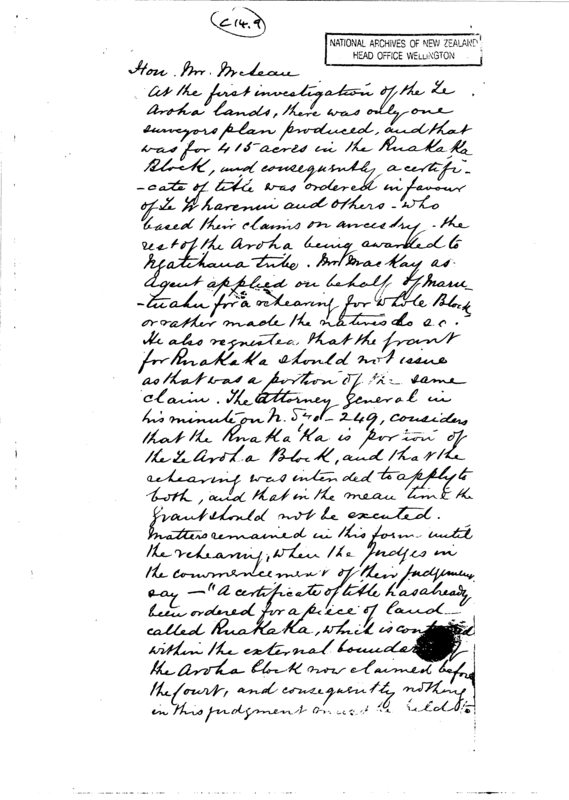 C 14.9
NATIONAL ARCHIVES OF NEW ZEALAND
HEAD OFFICE WELLINGTON
Hon. Mr. McLean
At the first investigation of the Te
Aroha lands, there was only one
surveyors plan produced, and that
was for 415 acres in the Ruakaka
Block, and consequently a certifi-
-cate of title was ordered in favour
of Te Wharenui and others - who
based their claims on ancestry - the
rest of the Aroha being awarded to
Ngatihaua tribe. Mr MacKay as
agent applied on behalf of Maru-
-tuahu for a rehearing for whole Block
or rather made the natives do so.
He also requested that the grant
for Ruakaka should not issue
as that was a portion of the same
claim. The Attorney General in
his minute on N. 249, considers
that the Ruakaka is portion of
the Te Aroha Block, and that the
rehearing was intended to apply to
both, and that in the mean time the
Grant should not be executed.
Matters remained in this form until
the rehearing, when the Judges in
the commencement of their judgment
say - "A certificate of title has already
been ordered for a piece of land
called Ruakaka, which is
within the external
the Aroha block now claimed before
the Court, and consequently nothing
in this judgment be held to